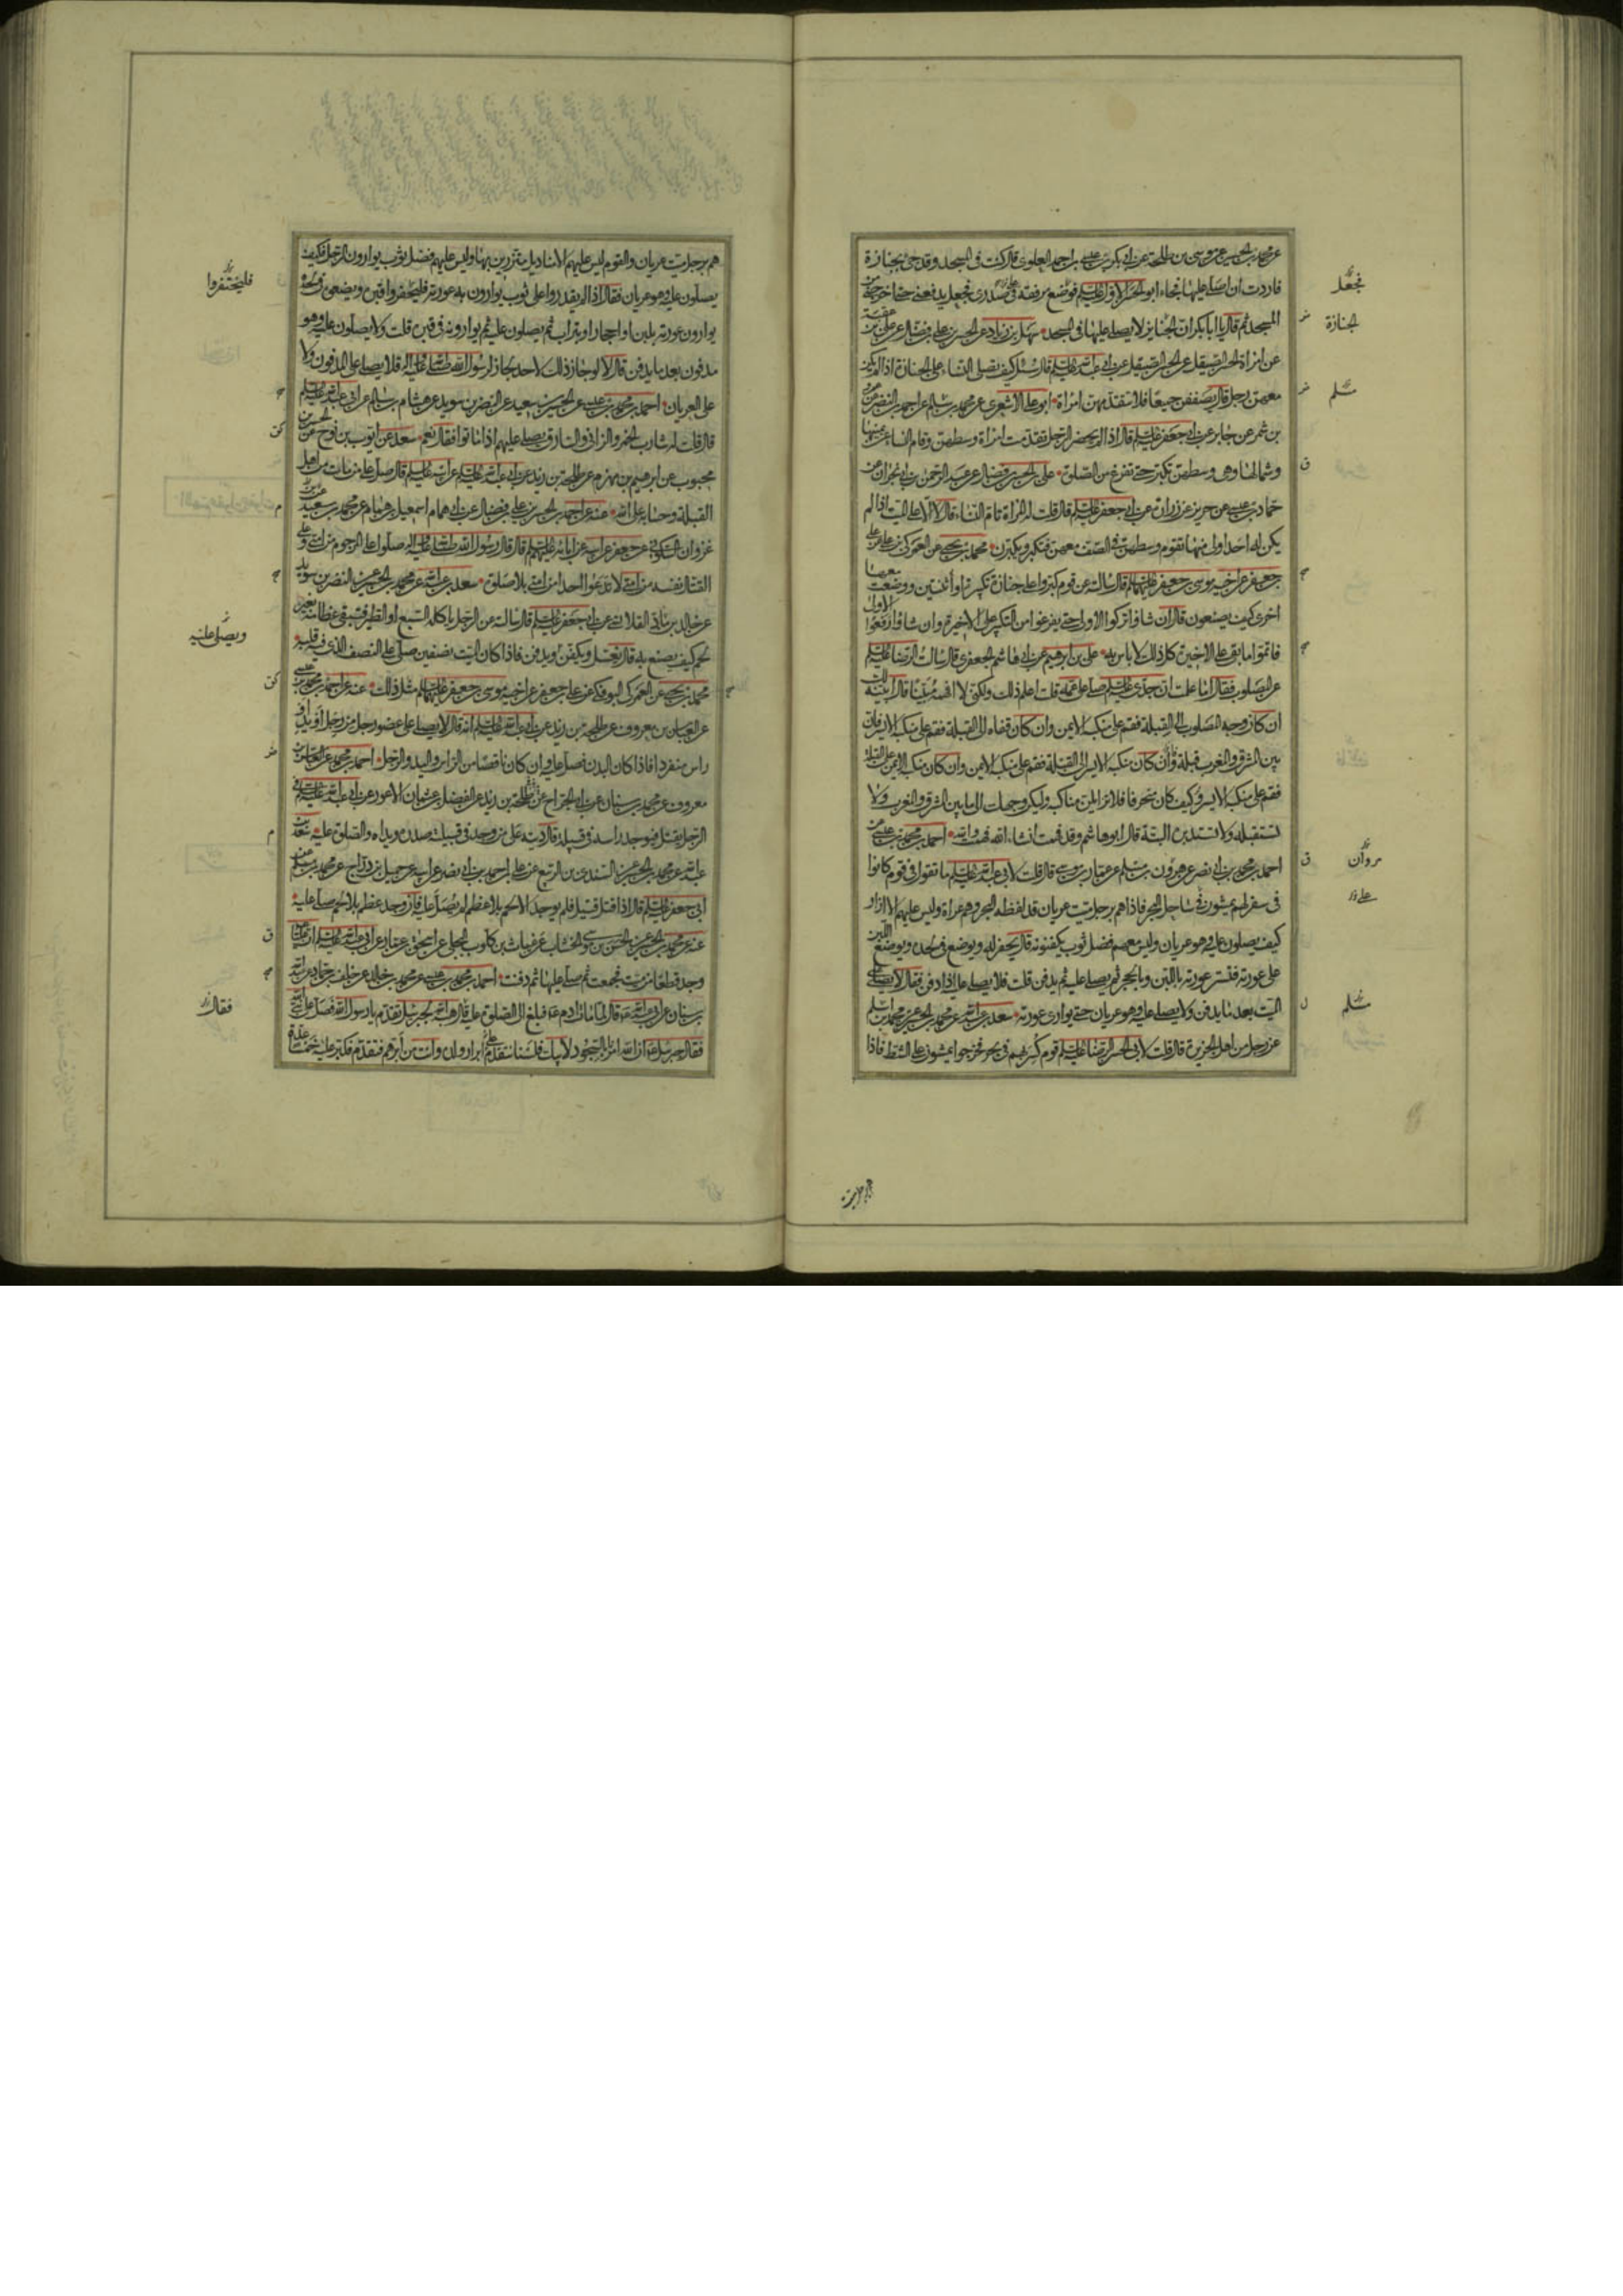 عن محمد بن الحسين عن موسى بن طلحة عن ابى بكر بن عيسى بن احمد العلوى قال كنت فى المسجد وقد جئ بجنازة
فاردت ان اصلى عليها فجاء ابو الحسن الاول عليه السلام فوضع مرفقه فى صدرى فجعل يدفعنى حتى خرج من
المسجد ثم قال يا ابا بكر ان الجنايز لا يصلى عليها فى المسجد سهل بن زياد عن الحسن بن على بن فضال عن على بن عقبة
عن امراة الحسن الصيقل عن الحسن الصيقل عن ابى عبد الله عليه السلام قال سئل كيف تصلى النساء على الجنازة اذا لم يكن
معهن رجل قال يصففن جميعا فلا تتقدمهن امراة ابو على الاشعرى عن محمد بن سالم عن احمد بن النضر عن عمرو
بن شمر عن جابر عن ابى جعفر عليه السلام قال اذا لم يحضر الرجل تقدمت امراة وسطهن وقام النساء عن يمينها
وشمالها وهى وسطهن تكبر حتى تفرغ من الصلوة على بن الحسن بن فضال عن عبد الرحمن بن ابى نجران عن
حماد بن عيسى عن حريز عن زرارة عن ابى جعفر عليه السلام قال قلت له المراة تؤم النساء قال لا الا على الميت اذا لم
يكن احد اولى منها تقوم وسطهن فى الصف معهن فتكبر ويكبرن محمد بن يحيى عن العمركى عن على بن
جعفر عن اخيه موسى بن جعفر عليهما السلام قال سالته عن قوم كبروا على جنازة تكبيرة او اثنتين ووضعت معها
اخرى كيف يصنعون قال ان شاؤا تركوا الاولى حتى يفرغوا من التكبير على الاخيرة وان شاؤا رفعوا الاولى
فاتموا ما بقى على الاخيرة كل ذلك لا باس به على بن ابرهيم عن ابى هاشم الجعفرى قال سالت الرضا عليه السلام
عن المصلوب فقال اما علمت ان جدى عليه السلام صلى على عمه قلت اعلم ذلك ولكنى لا افهمه مبينا قال ابينه لك
ان كان وجه المصلوب الى القبلة فقم على منكبه الايمن وان كان قفاه الى القبلة فقم على منكبه الايسر فان
بين المشرق والمغرب قبلة وان كان منكبه الايسر الى القبلة فقم على منكبه الايمن وان كان منكبه الايمن الى القبلة
فقم على منكبه الايسر وكيف كان منحرفا فلا تزايلن مناكبه وليكن وجهك الى ما بين المشرق والمغرب ولا
تستقبله ولا تستدبره البتة قال ابو هاشم وقد فهمت ان شاء الله فهمته والله احمد بن محمد بن عيسى عن
احمد بن محمد بن ابى نصر عن هرون بن مسلم عن عمار بن موسى قال قلت لابى عبد الله عليه السلام ما تقول فى قوم كانوا
فى سفر لهم يمشون فى ساحل البحر فاذا هم برجل ميت عريان قد لفظه البحر وهم عراة وليس عليهم الا ازار
كيف يصلون عليه وهو عريان وليس معهم فضل ثوب يكفنونه قال يحفر له ويوضع فى لحده ويوضع اللبن
على عورته فتستر عورته باللبن وبالحجر ثم يصلى عليه ثم يدفن قلت فلا يصلى عليه اذا دفن فقال لا يصلى على
الميت بعد ما يدفن ولا يصلى عليه وهو عريان حتى يوارى عورته سعد بن عبد الله عن محمد بن الحسين عن محمد بن اسلم
عن رجل من اهل الجزيرة قال قلت لابى الحسن الرضا عليه السلام قوم كسر بهم فى بحر فخرجوا يمشون على الشط فاذا
فجعل
الجنازة
مسلم
مروان
مسلم
هم برجل ميت عريان والقوم ليس عليهم الا مناديل متزرين بها وليس عليهم فضل ثوب يوارون الرجل فكيف
يصلون عليه وهو عريان فقال اذا لم يقدروا على ثوب يوارون به عورته فليحفروا قبره ويضعوه فى لحده
يوارون عورته بلبن او احجار او تراب ثم يصلون عليه ثم يوارونه فى قبره قلت ولا يصلون عليه وهو
مدفون بعد ما يدفن قال لا لو جاز ذلك لاحد لجاز لرسول الله صلى الله عليه واله فلا يصلى على المدفون ولا
على العريان احمد بن محمد بن عيسى عن الحسين بن سعيد عن النضر بن سويد عن هشام بن سالم عن ابى عبد الله عليه السلام
قال قلت له شارب الخمر والزانى والسارق يصلى عليهم اذا ماتوا فقال نعم سعد عن ايوب بن نوح عن الحسن بن
محبوب عن ابرهيم بن مهزم عن طلحة بن زيد عن ابى عبد الله عليه السلام عن ابيه عليه السلام قال صل على من مات من اهل
القبلة وحسابه على الله عنه عن احمد بن الحسن بن على بن فضال عن ابى همام اسمعيل بن همام عن محمد بن سعيد بن
غزوان السكونى عن جعفر عن ابيه عن ابائه عليهم السلام قال قال رسول الله صلى الله عليه واله صلوا على المرجوم من امتى وعلى
القتال نفسه من امتى لا تدعوا احدا من امتى بلا صلوة سعد بن عبد الله عن محمد بن الحسين عن النضر بن سويد
عن خالد بن ماد القلانسى عن ابى جعفر عليه السلام قال سالته عن الرجل ياكله السبع او الطير فتبقى عظامه بغير
لحم كيف يصنع به قال يغسل ويكفن ويدفن فاذا كان الميت نصفين صلى على النصف الذى فيه قلبه
محمد بن يحيى عن العمركى البوفكى عن على بن جعفر عن اخيه موسى بن جعفر عليهما السلام مثل ذلك عنه عن احمد بن محمد بن عيسى
عن العباس بن معروف عن طلحة بن زيد عن ابى عبد الله عليه السلام انه قال لا يصلى على عضو رجل من رجل او يد او
راس منفردا فاذا كان البدن فصل عليه وان كان ناقصا من الراس واليد والرجل احمد بن محمد عن العباس بن
معروف عن محمد بن سنان عن ابى الجراح عن طلحة بن زيد عن الفضل بن عثمان الاعور عن ابى عبد الله عليه السلام فى
الرجل يقتل فيوجد راسه فى قبيلة قال ديته على من وجد فى قبيلته صدره ويداه والصلوة عليه سعد بن
عبد الله عن محمد بن الحسين عن السندى بن الربيع عن على بن احمد بن ابى نصر عن ابيه عن جميل بن دراج عن محمد بن مسلم عن
ابى جعفر عليه السلام قال اذا قتل قتيل فلم يوجد الا لحم بلا عظم لم يصل عليه فان وجد عظم بلا لحم صلى عليه
عنه عن محمد بن الحسين عن الحسن بن موسى الخشاب عن غياث بن كلوب البجلى عن اسحق بن عمار عن ابى عبد الله عليه السلام ان عليا
وجد قطعا من ميت فجمعت ثم صلى عليها ثم دفنت احمد بن محمد بن عيسى عن محمد بن خالد عن خلف بن حماد عن عبد الله
بن سنان عن ابى عبد الله قال لما مات ادم فبلغ الى الصلوة عليه قال هبة الله لجبرئيل تقدم يا رسول الله فصل على نبى الله
فقال جبرئيل ان الله امرنا بالسجود لابيك فلسنا نتقدم ابرار ولده وانت من ابرهم فتقدم فكبر عليه خمسا
فليحتفروا
ويصلى عليه
فقال